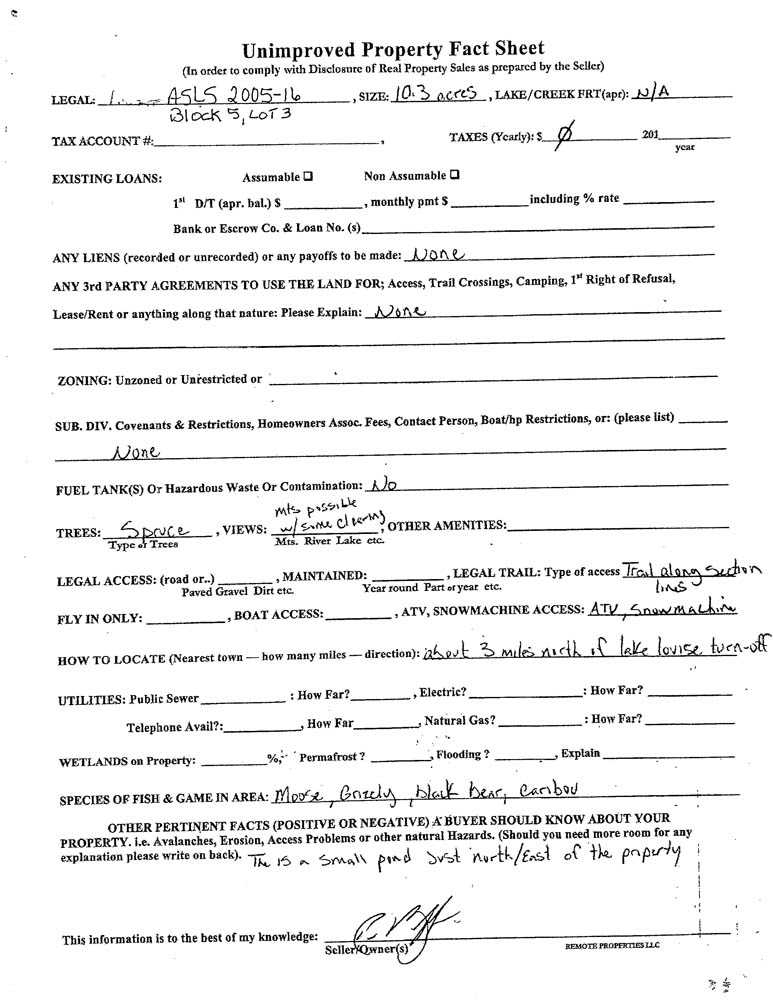 Unimproved Property Fact Sheet
(In order to comply with Disclosure of Real Property Sales as prepared by the Seller)
LEGAL: ASLS 2005-16, SIZE: 10.3 acres, LAKE/CREEK FRT(apr): N/A
Block 5, LOT 3
TAX ACCOUNT #:____, TAXES (Yearly): $ Ø 201____
year
EXISTING LOANS: Assumable ☐ Non Assumable ☐
1st D/T (apr. bal.) $ ____, monthly pmt $ ____ including % rate ____
Bank or Escrow Co. & Loan No. (s)____
ANY LIENS (recorded or unrecorded) or any payoffs to be made: None
ANY 3rd PARTY AGREEMENTS TO USE THE LAND FOR; Access, Trail Crossings, Camping, 1st Right of Refusal,
Lease/Rent or anything along that nature: Please Explain: None
ZONING: Unzoned or Unrestricted or ____
SUB. DIV. Covenants & Restrictions, Homeowners Assoc. Fees, Contact Person, Boat/hp Restrictions, or: (please list) ____
None
FUEL TANK(S) Or Hazardous Waste Or Contamination: No
mts possible
TREES: Spruce, VIEWS: w/ some clearing, OTHER AMENITIES:____
Type of Trees Mts. River Lake etc.
LEGAL ACCESS: (road or..) ____, MAINTAINED: ____, LEGAL TRAIL: Type of access Trail along section
Paved Gravel Dirt etc. Year round Part of year etc. lines
FLY IN ONLY: ____, BOAT ACCESS: ____, ATV, SNOWMACHINE ACCESS: ATV, Snowmachine
HOW TO LOCATE (Nearest town — how many miles — direction): about 3 miles north of lake louise turn-off
UTILITIES: Public Sewer ____: How Far? ____, Electric? ____: How Far? ____
Telephone Avail?: ____, How Far____, Natural Gas? ____: How Far? ____
WETLANDS on Property: ____%, Permafrost ? ____, Flooding ? ____, Explain ____
SPECIES OF FISH & GAME IN AREA: Moose, Grizely, black bear, Caribou
OTHER PERTINENT FACTS (POSITIVE OR NEGATIVE) A BUYER SHOULD KNOW ABOUT YOUR
PROPERTY. i.e. Avalanches, Erosion, Access Problems or other natural Hazards. (Should you need more room for any
explanation please write on back). The is a small pond Just north/East of the property
This information is to the best of my knowledge:
Seller/Owner(s) REMOTE PROPERTIES LLC